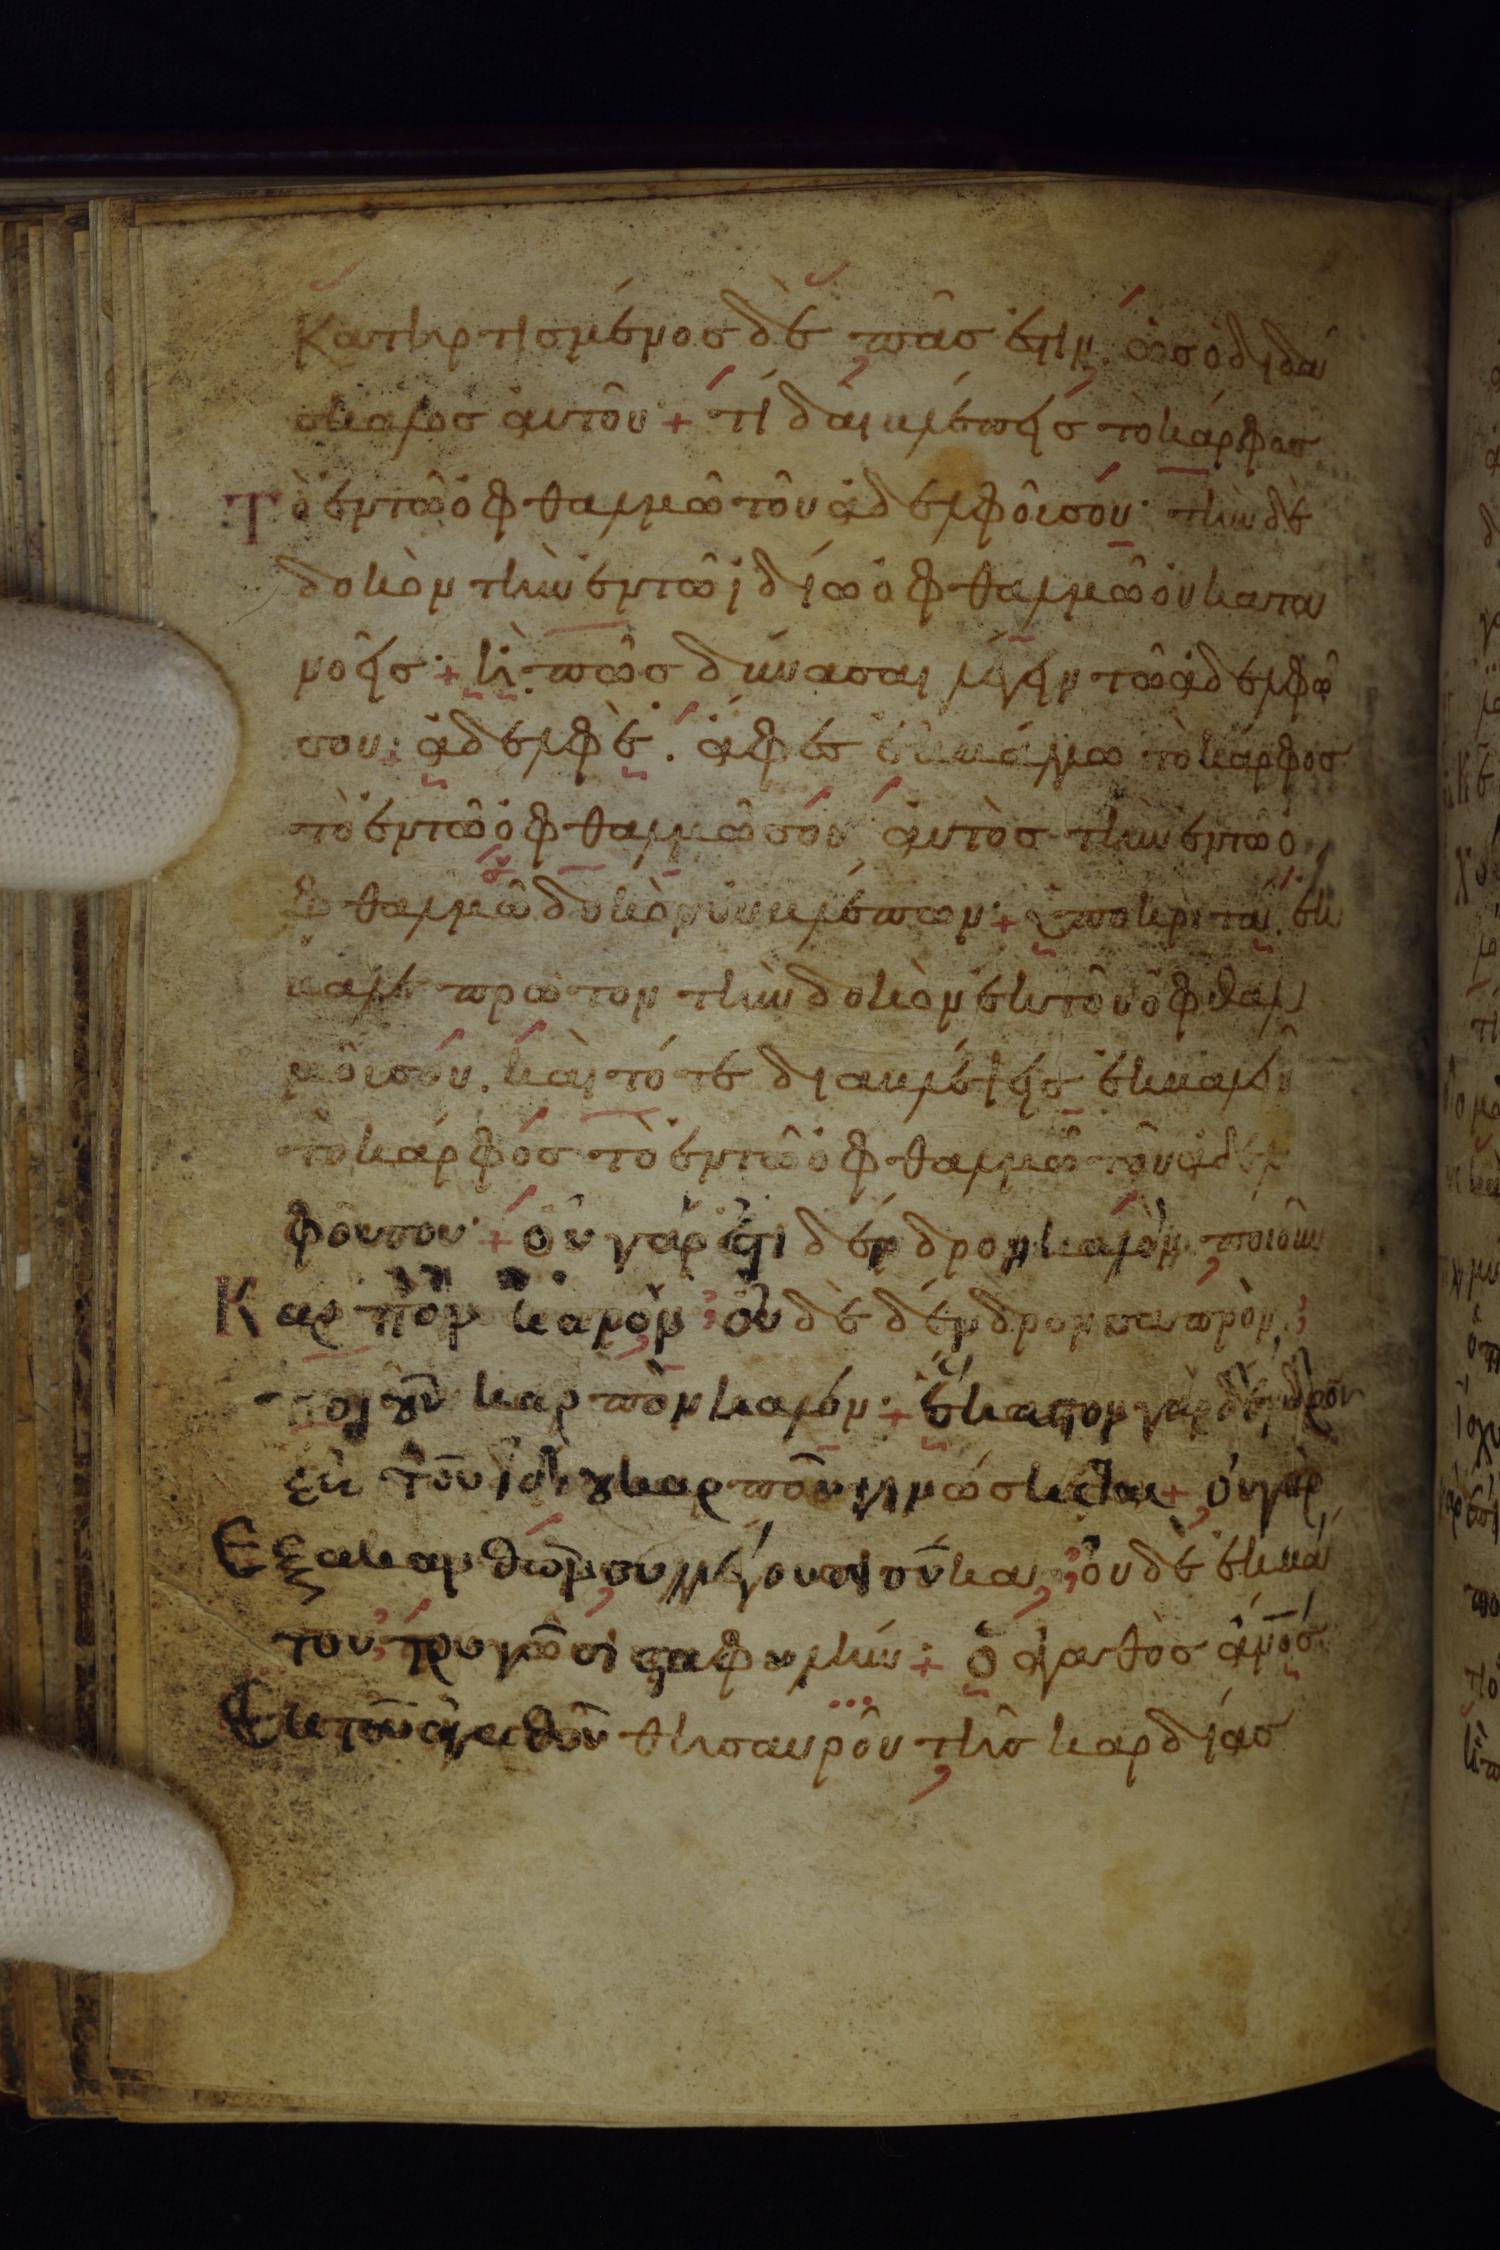 Κατηρτισμένος δὲ πᾶς ἔστιν. ὡς ὁ διδά
σκαλος ἀυτοῦ + τί δαι βλέπεις τὸ κάρφος
Τὸ ἐν τῶ ὀφθαλμῶ τοῦ ἀδελφοῦ σόυ· τὴν δὲ
δοκὸν τὴν ἐν τῶ ϊδίω ὀφθαλμῶ ὀυ κατα
νοεῖς· + ἢ πῶς δύνασαι λέγειν τῶ ἀδελφῶ
σου· ἀδελφὲ. ἄφες ἐκβάλω τὸ κάρφος
τὸ ἐν τῶ ὀφθαλμῶ σόυ ἀυτὸς τὴν ἐν τῶ ὀ
φθαλμῶ σ δοκὸν ὀυ βλέπων· + ὑποκριταί. ἔκ
βαλε πρῶτον τὴν δοκὸν ἐκ τοῦ ὀφθαλ
μοῦ σόυ. καὶ τότε διαβλέψεις ἐκβαλεῖν
τὸ κάρφος τὸ ἐν τῶ ὀφθαλμῶ τοῦ ἀδελ
φοῦ σου· + ὀυ γάρ ἐστι δένδρον καλὸν ποιοῦν
Καρπὸν καλὸν ὀυδὲ δένδρον σαπρὸν
ποιοῦν καρπὸν καλόν· + ἕκαστον γὰρ δένδρον
ἐκ τοῦ ἰδίου καρποῦ γινώσκεται + ὀυ γὰρ
Ἐξ ακανθῶν συλλέγουσι σῦκα, ὀυδὲ ἐκ βά
του τρυγῶσι σταφυλήν + ὁ ἀγαθὸς ἄνος
Ἐκ τοῦ ἀγαθοῦ θησαυροῦ τῆς καρδίας